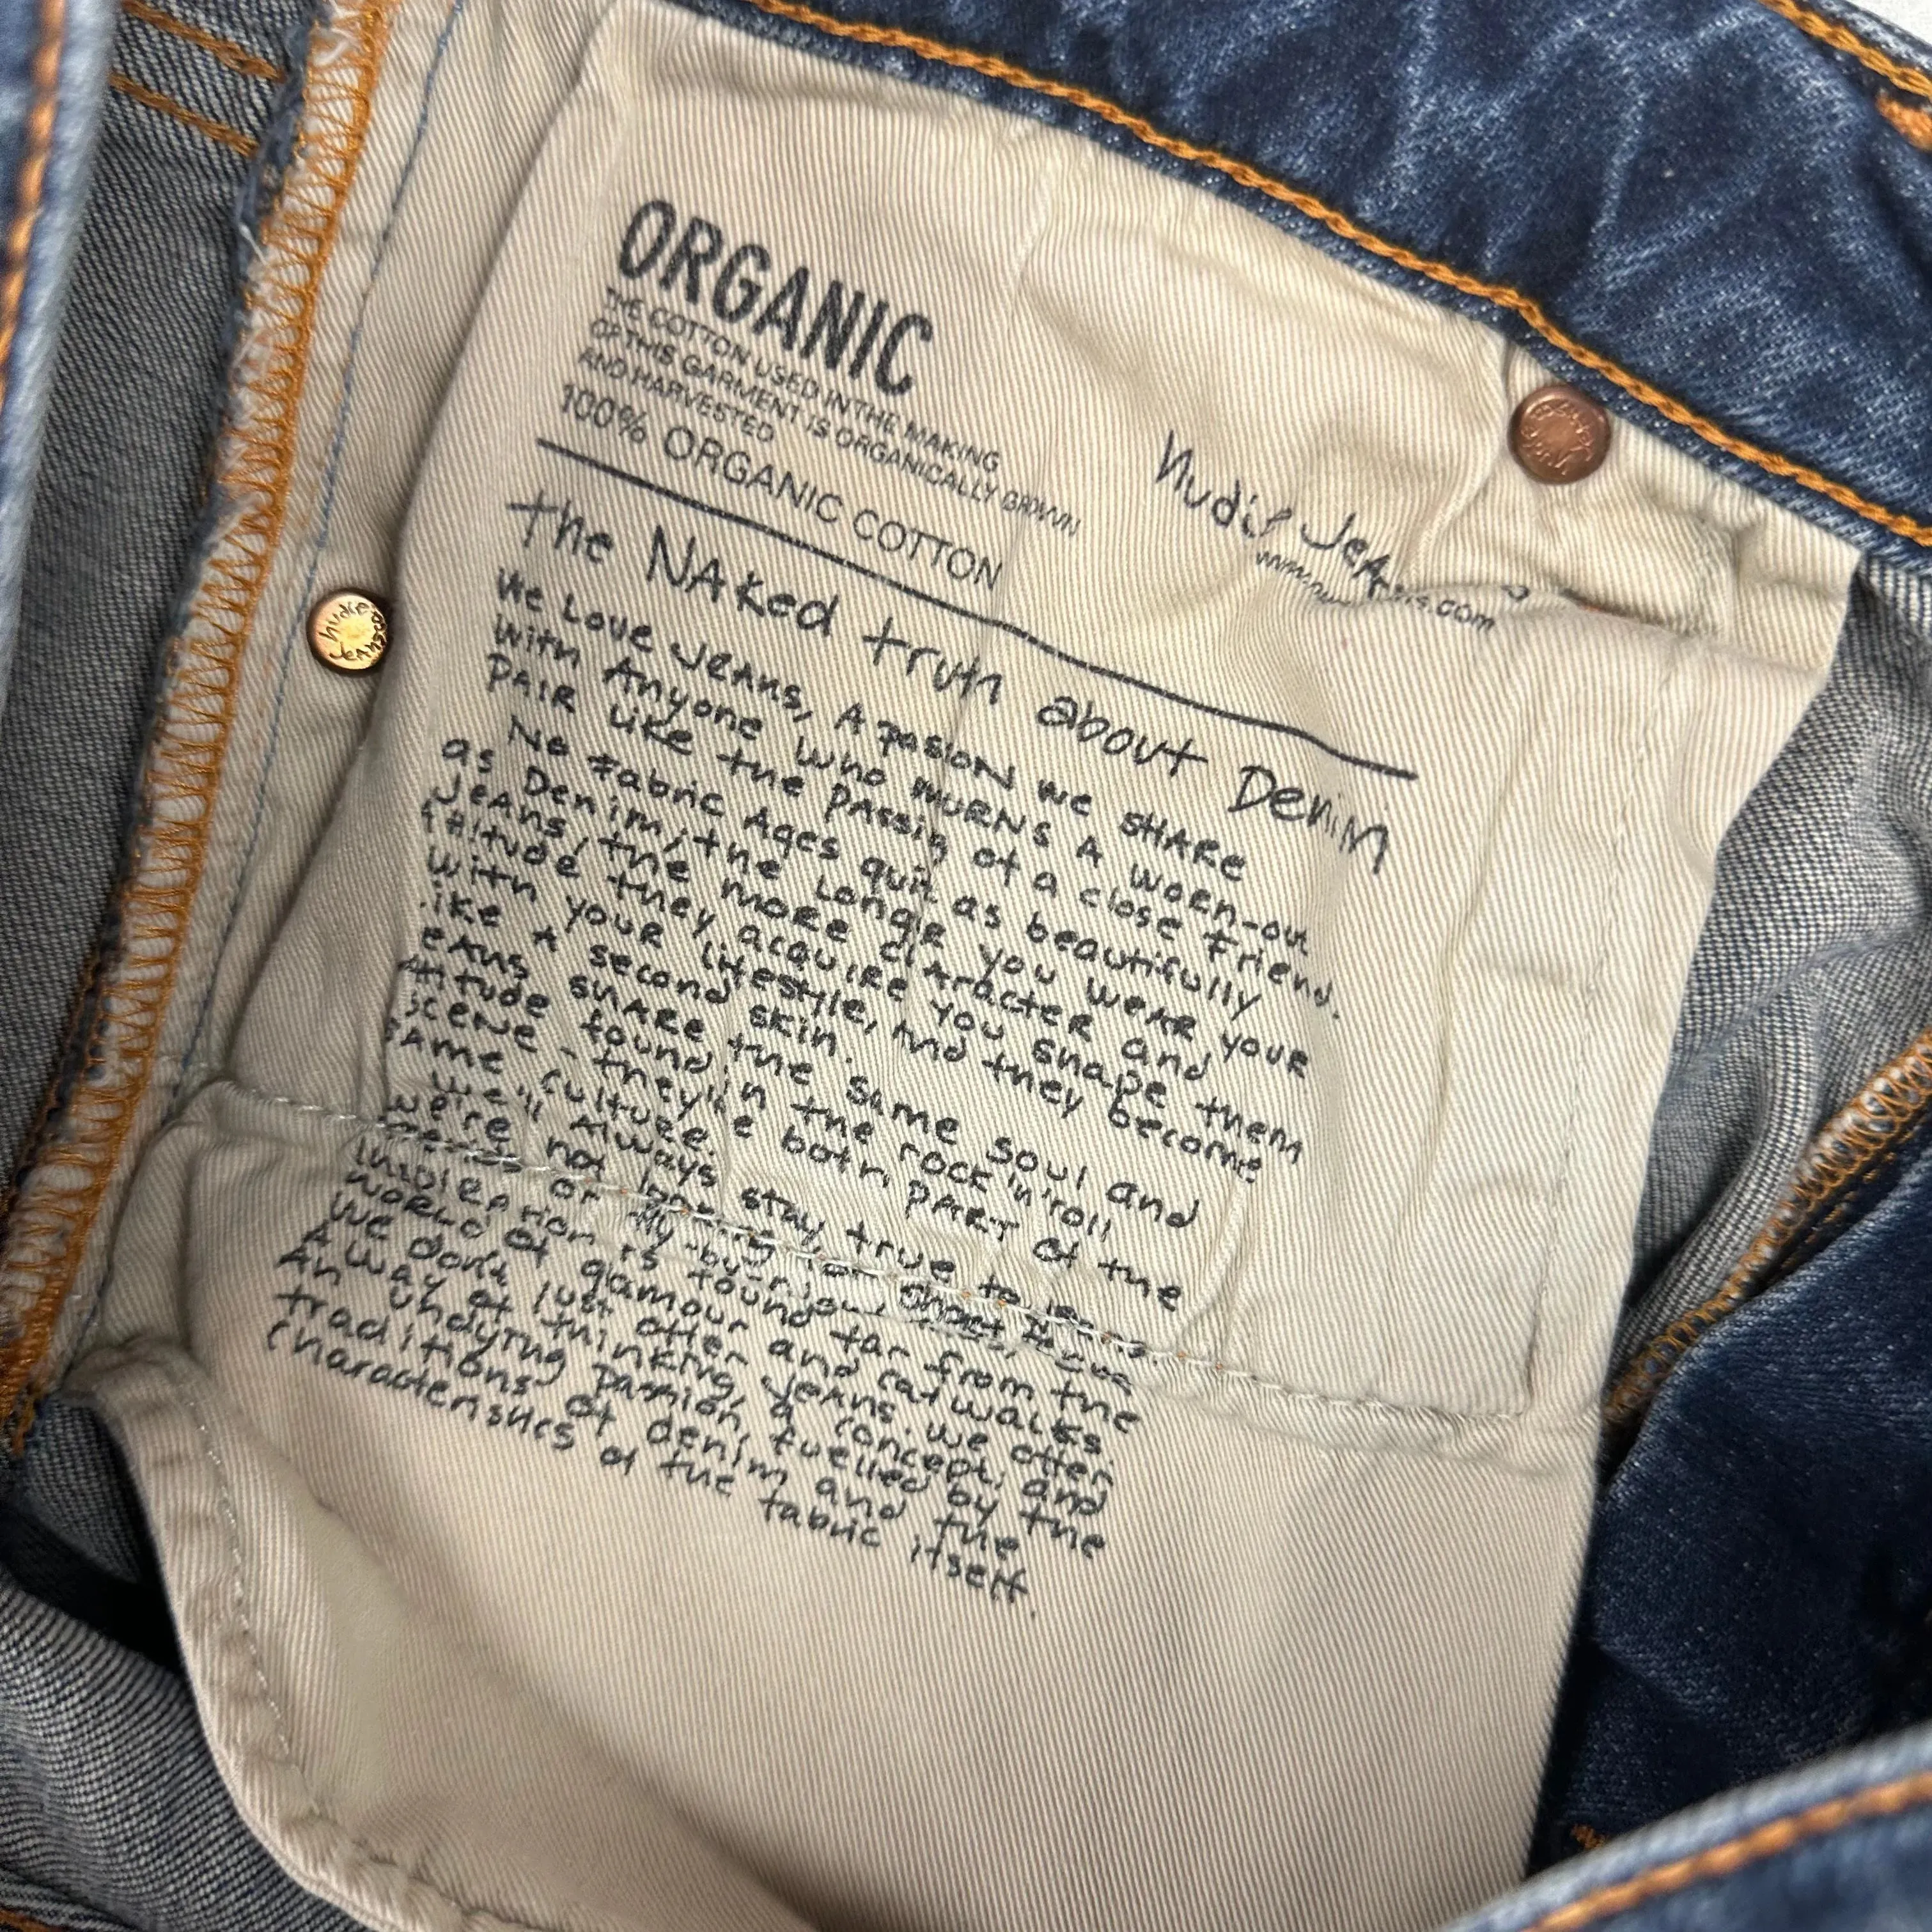 ORGANIC
THE COTTON USED IN THE MAKING
OF THIS GARMENT IS ORGANICALLY GROWN
AND HARVESTED
100% ORGANIC COTTON
Nudie Jeans
nudie Jeans
the NAKed truth about Denim
We Love JEANS, A pasion we SHARE
with Anyone who MURNS A WORN-out
PAIR like the PASSIG of a close Friend.
No Fabric Ages quit as beautifully
as Denim; the Longer you WEAR YOUR
JEANS, the more CHARACTER and
titude they acquire. You shape them
with your lifestyle, and they become
like A second skin.
eans share the same soul and
titude found in the rock'n'roll
scene - they're both PART of the
same culture.
We'll always stay true to
we're not looking for short
or
inspiration is found far from the
WORLD of gamour and catwalks.
We dont just offer JEANS. We offer
A way of thinking, a concept, and
An undying passion, fuelled by the
traditions of denim and the
characteristics of the fabric itself.